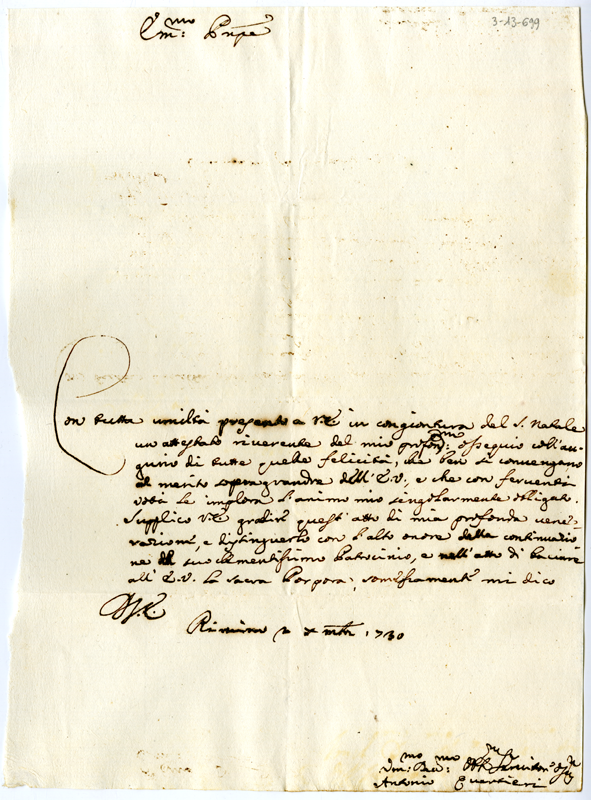 3-13-699
E.mo Pnpe
Con tutta umiltà presento a V.E. in congiontura del S. Natale
un attestato riverente del mio profon:mo ossequio coll'au-
gurio di tutte quelle felicità, che ben si convengano
al merito sopragrande dell'E.V., e che con ferventi
voti le implora l'animo mio singolarmente obligato.
Supplico V.E. gradire quest'atto di mia profonda vene-
razione, e distinguerlo con l'alto onore della continuazio
ne del suo clementissimo Patrocinio, e nell'atto di baciare
all'E.V. la sacra Porpora, mi dico
D.V.E.
Rimino 2 Xmbre 1730
Um:mo Dev:mo Obl.
Antonio